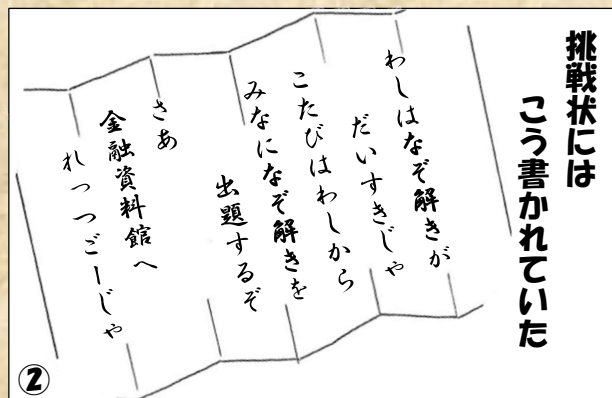 挑戦状には
こう書かれていた
わしはなぞ解きが
だいすきじゃ
こたびはわしから
みなになぞ解きを
出題するぞ
さあ
金融資料館へ
れっつごーじゃ
②